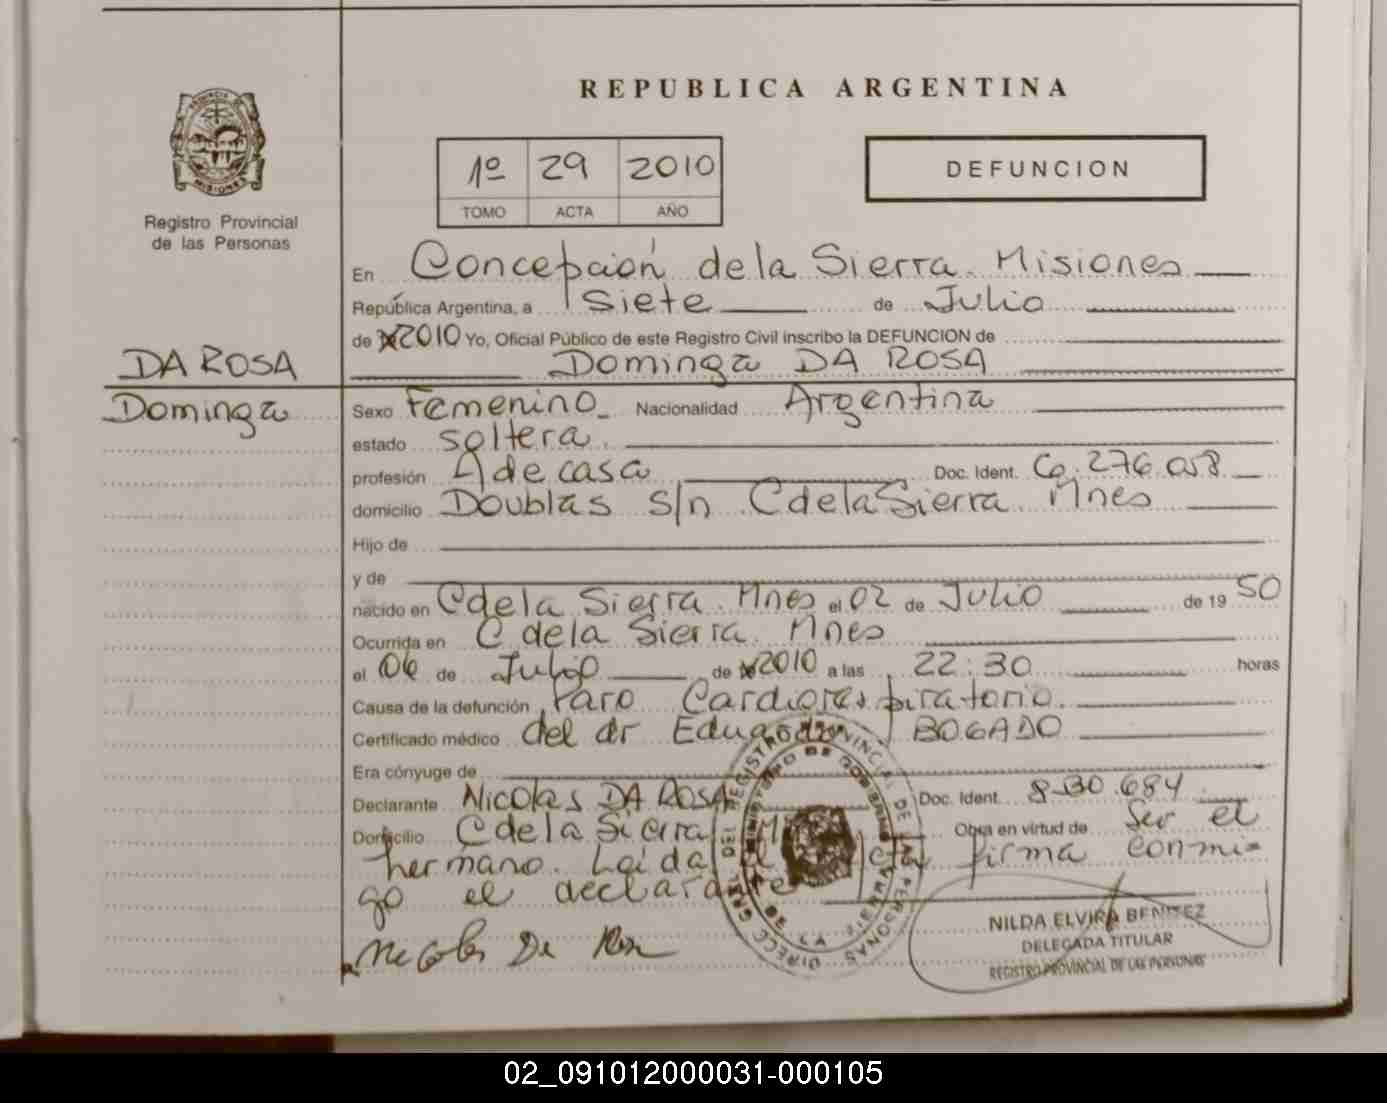 REPUBLICA ARGENTINA
PROVINCIA DE
MISIONES
Registro Provincial
de las Personas
1º 29 2010
TOMO ACTA AÑO
DEFUNCION
En Concepción de la Sierra. Misiones
República Argentina, a Siete de Julio
de 2010 Yo, Oficial Público de este Registro Civil inscribo la DEFUNCION de
DA ROSA
Dominga DA ROSA
Dominga
Sexo Femenino Nacionalidad Argentina
estado soltera
profesión A de casa Doc. Ident. 276.058
domicilio Doublas s/n C de la Sierra Mnes
Hijo de
y de
nacido en C de la Sierra. Mnes el 02 de Julio de 19 50
Ocurrida en C. de la Sierra. Mnes
el 06 de Julio de 2010 a las 22:30 horas
Causa de la defunción Paro Cardiorespiratorio
Certificado médico del dr Eduardo BOGADO
Era cónyuge de
Declarante Nicolas DA ROSA Doc. Ident. 8.130.684
Domicilio C de la Sierra Obra en virtud de Ser el
hermano. Leida el acta firma conmi-
go el declarante
Nicolas Da Rosa
DIRECC. GRAL. DEL REGISTRO PROVINCIAL DE LAS PERSONAS
MINISTERIO DE GOBIERNO
NILDA ELVIRA BENITEZ
DELEGADA TITULAR
REGISTRO PROVINCIAL DE LAS PERSONAS
02_091012000031-000105